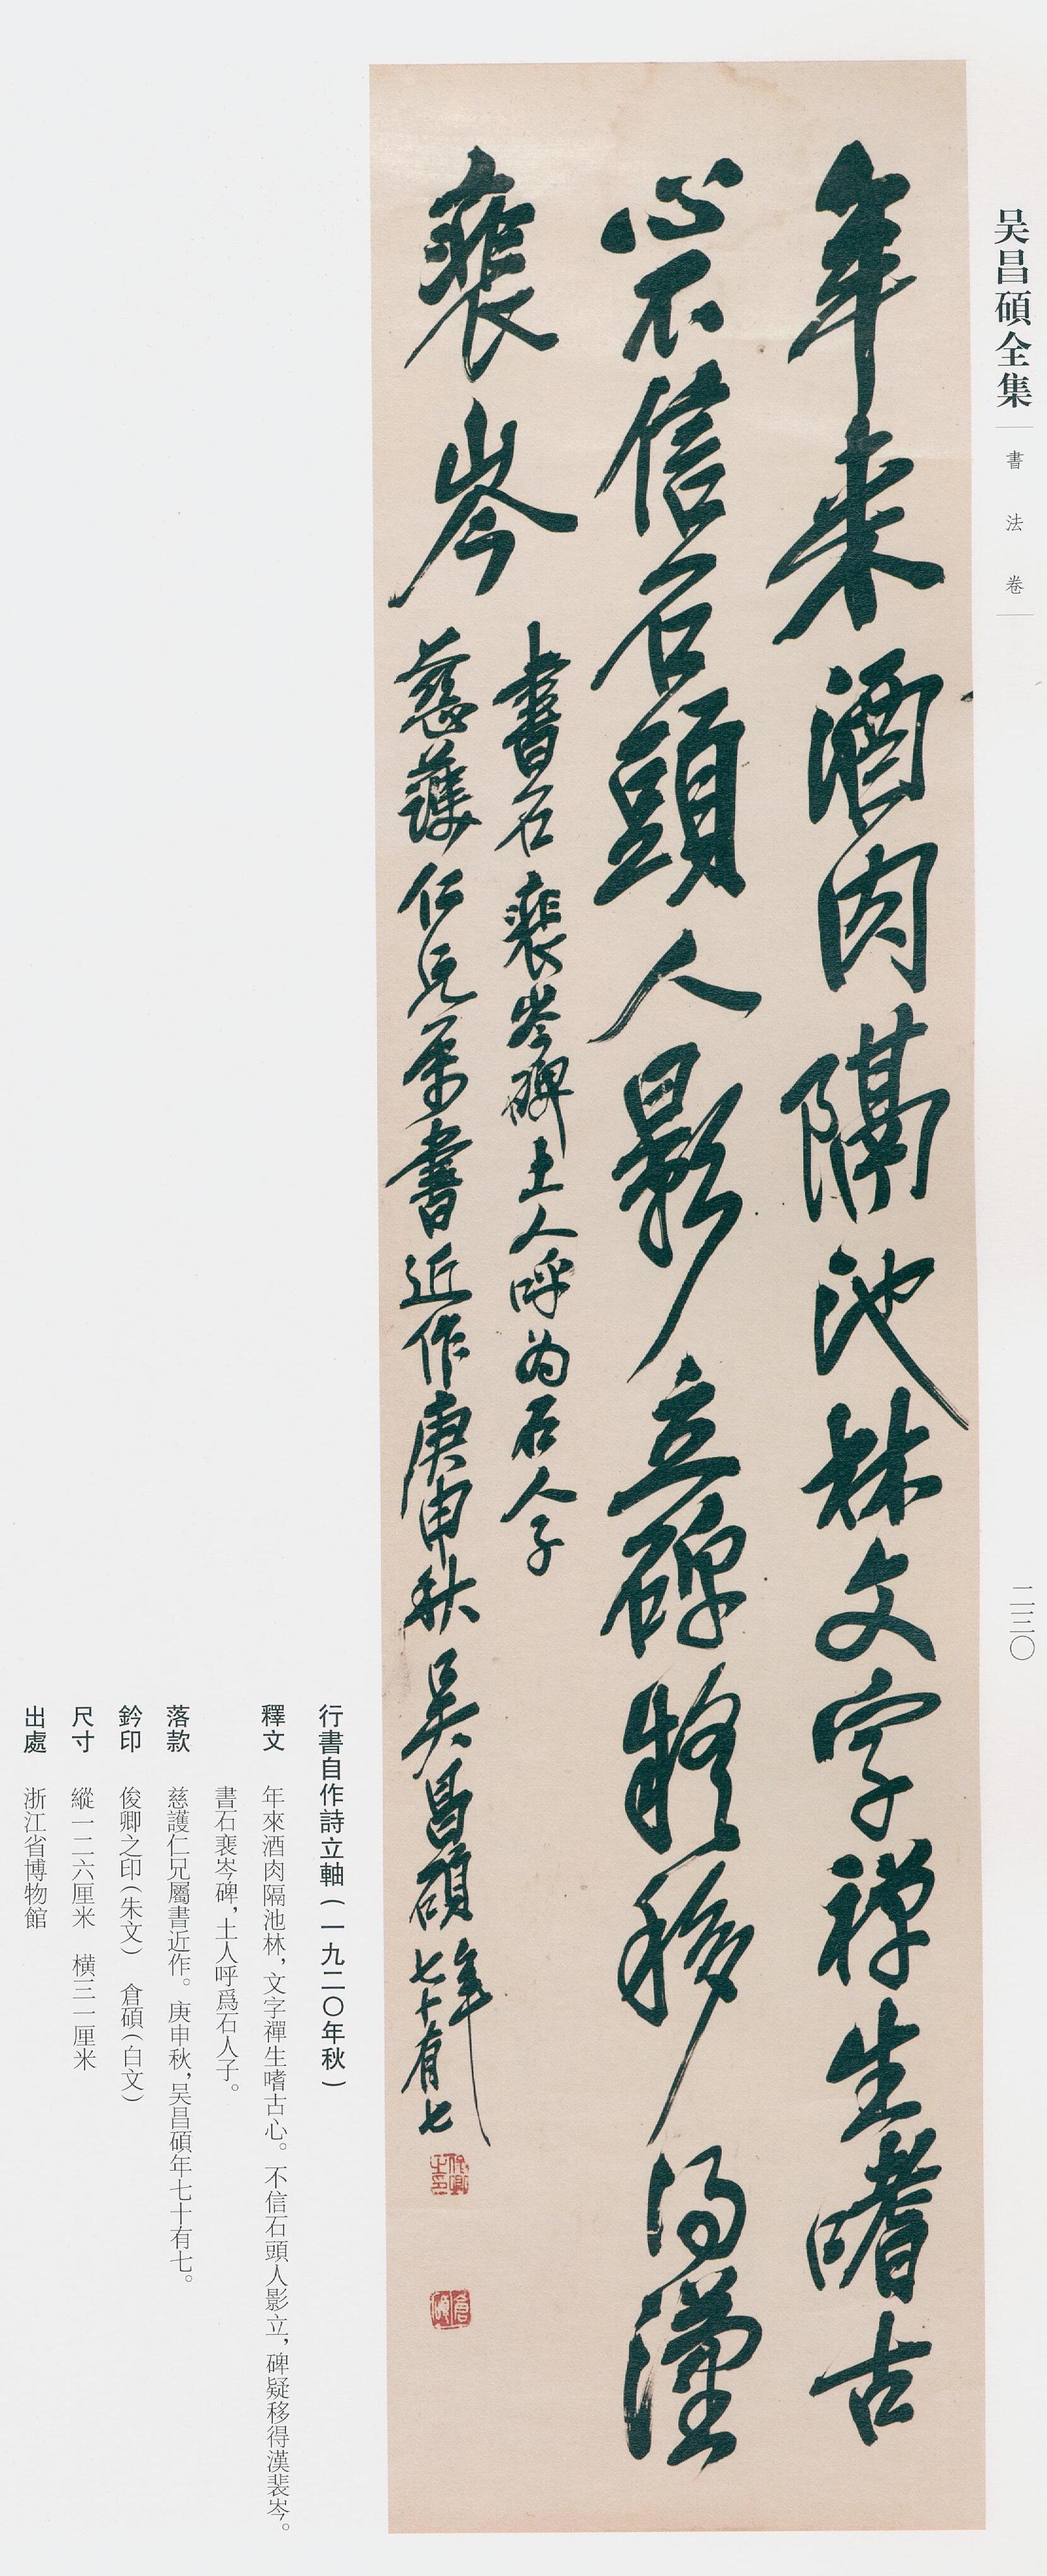 吴昌碩全集
書法卷
二三〇
年来酒肉隔池林文字禅生嗜古
心不信石頭人影立碑疑移得漢
裴岑
書石裴岑碑土人呼為石人子
慈護仁兄屬書近作庚申秋吴昌碩年
七十有七
俊卿之印
倉碩
行書自作詩立軸(一九二〇年秋)
釋文 年來酒肉隔池林,文字禪生嗜古心。不信石頭人影立,碑疑移得漢裴岑。
書石裴岑碑,土人呼爲石人子。
落款 慈護仁兄屬書近作。庚申秋,吴昌碩年七十有七。
鈐印 俊卿之印(朱文) 倉碩(白文)
尺寸 縱一二六厘米 橫三一厘米
出處 浙江省博物館